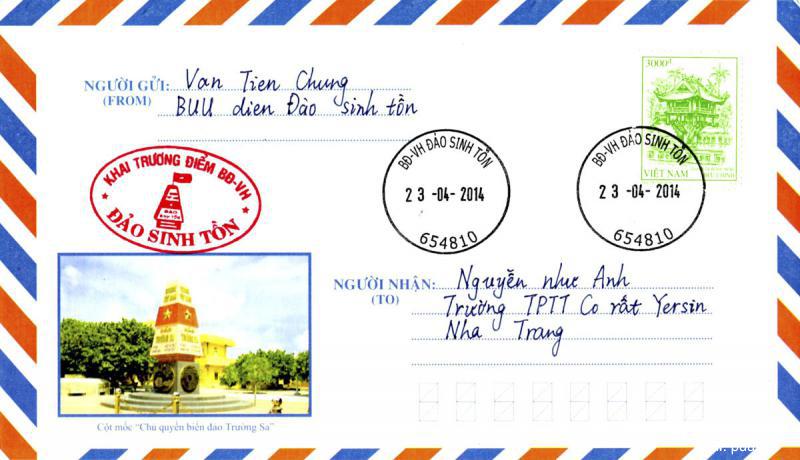 3000đ
NGƯỜI GỬI: Van Tien Chung
(FROM) BƯU dien Đảo sinh tồn
VIỆT NAM
KHAI TRƯƠNG ĐIỂM BĐ-VH
ĐẢO SINH TỒN
BĐ-VH ĐẢO SINH TỒN
23-04-2014
654810
BĐ-VH ĐẢO SINH TỒN
23-04-2014
654810
NGƯỜI NHẬN: Nguyễn như Anh
(TO) Trường TPTT Co rất Yersin
Nha Trang
Cột mốc "Chủ quyền biển đảo Trường Sa"